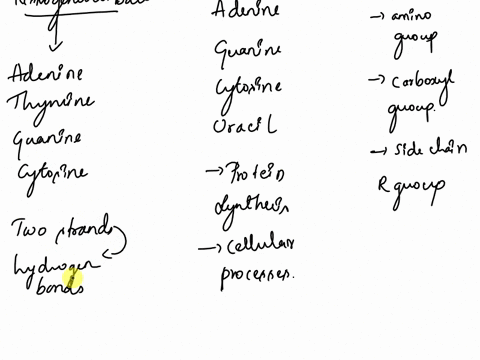 Adenine
Thymine
Guanine
Cytosine
Two strands
hydrogen
bonds
Adenine
Guanine
Cytosine
Uracil
→ Protein
Synthesis
→ Cellular
processes.
→ amino
group
→ Carboxyl
group.
→ side chain
R group